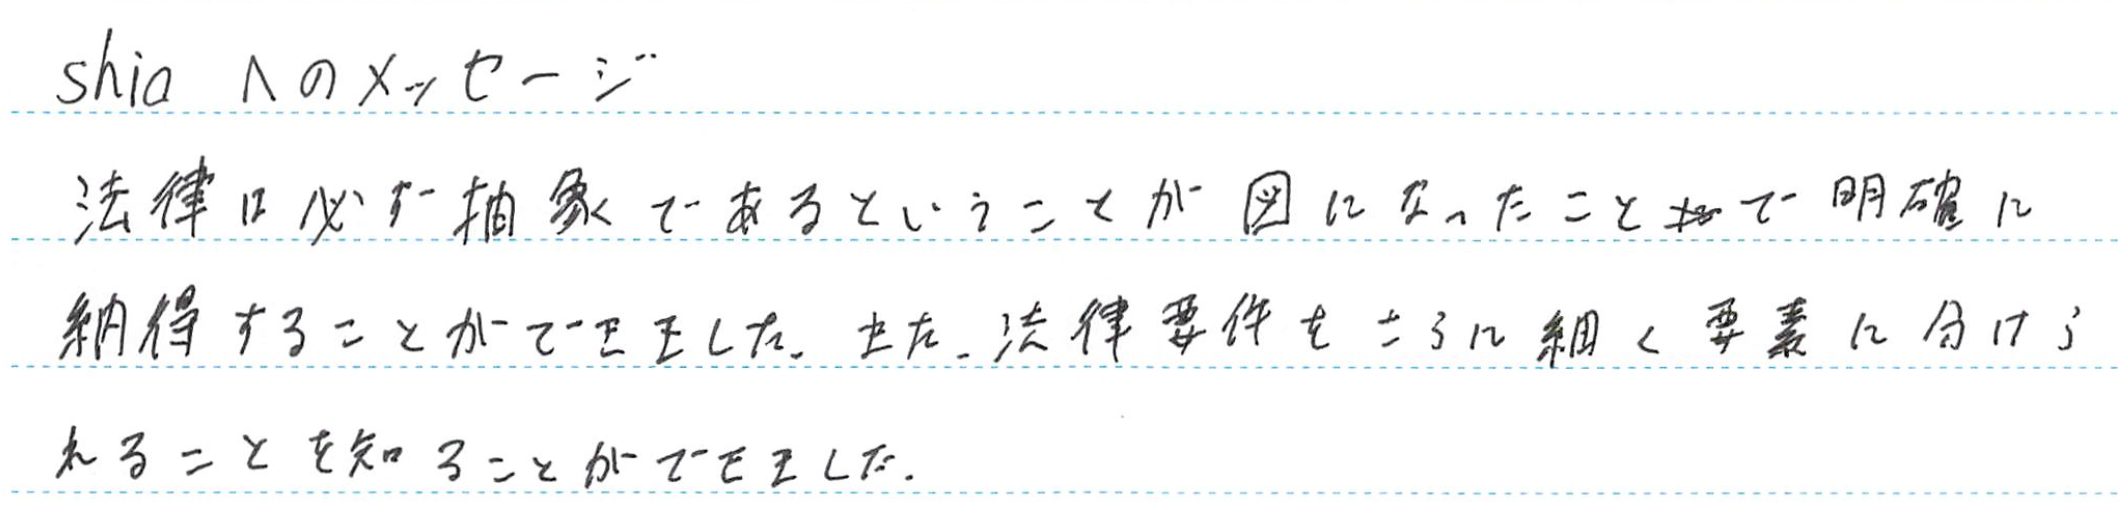 shia へのメッセージ
法律は必ず抽象であるということが図になったことで明確に
納得することができました。また、法律要件をさらに細く要素に分けら
れることを知ることができました。